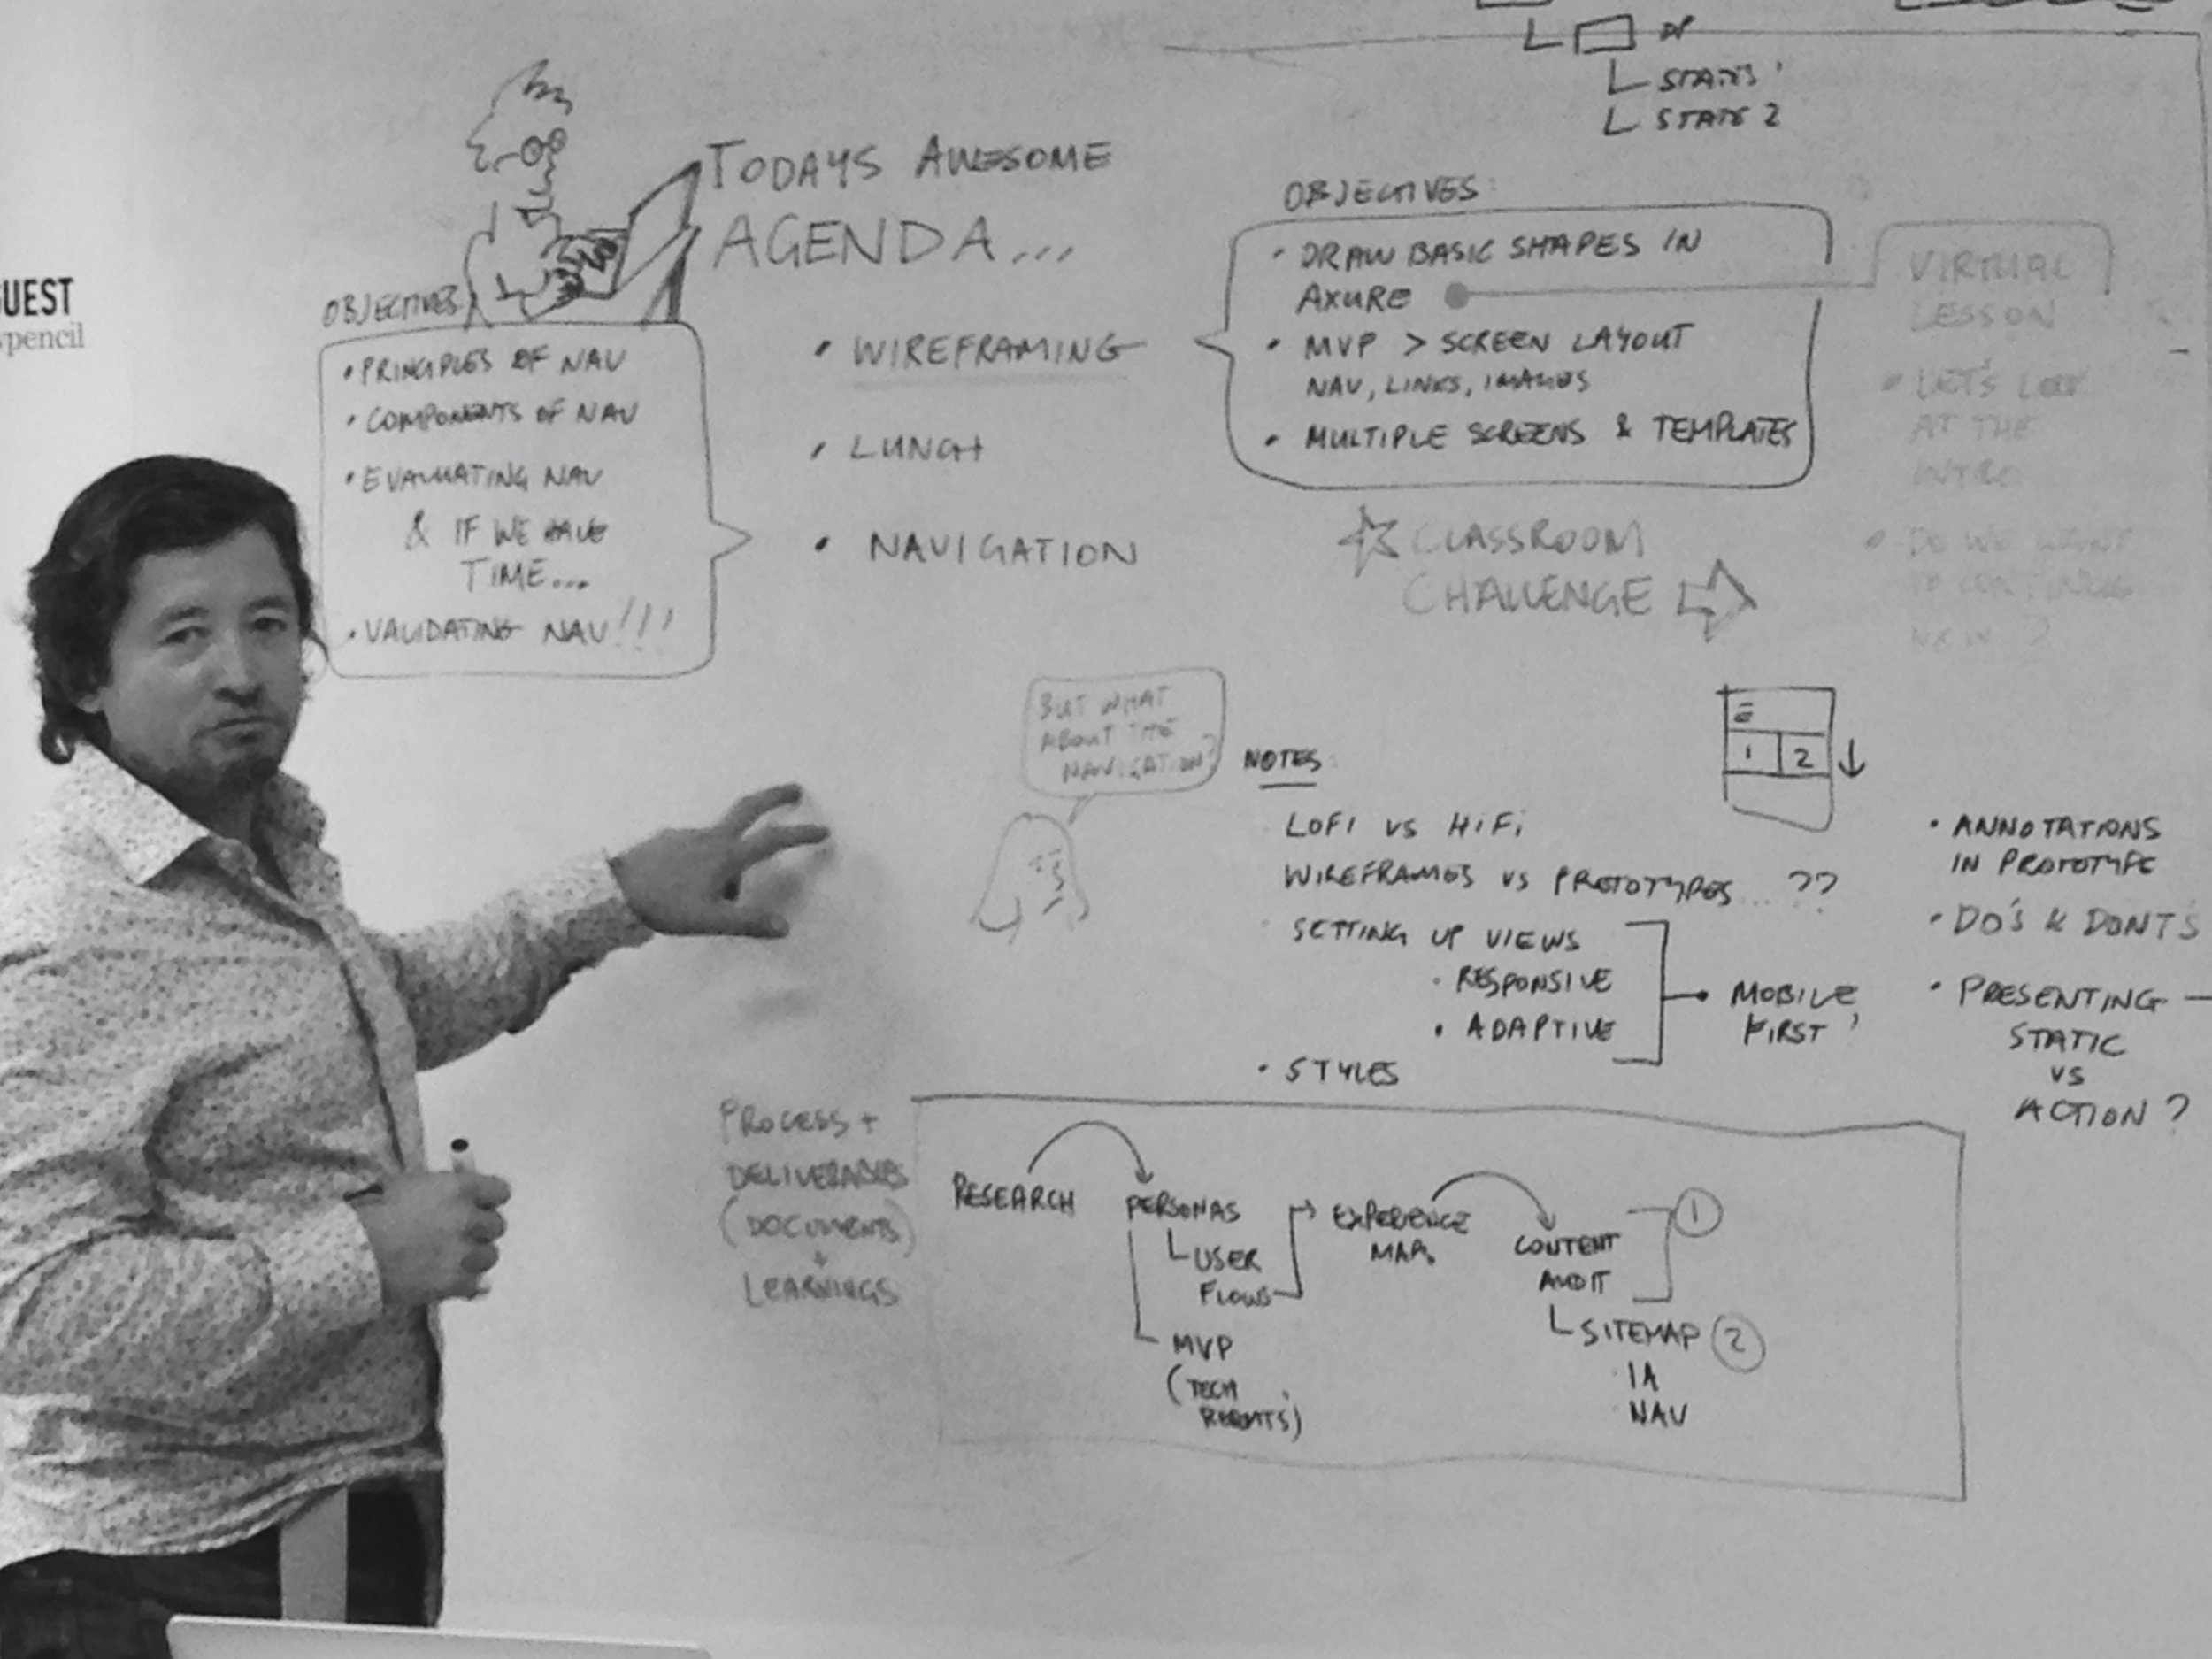 UEST
pencil
DP
STATE 1
STATE 2
TODAYS AWESOME
AGENDA...
OBJECTIVES
• PRINCIPLES OF NAV
• COMPONENTS OF NAV
• EVALUATING NAV
& IF WE HAVE
TIME...
• VALIDATING NAV!!!
• WIREFRAMING
• LUNCH
• NAVIGATION
OBJECTIVES:
• DRAW BASIC SHAPES IN
AXURE
• MVP > SCREEN LAYOUT
NAV, LINKS, IMAGES
• MULTIPLE SCREENS & TEMPLATES
CLASSROOM
CHALLENGE
VIRTUAL
LESSON
• LET'S LOOK
AT THE
INTRO
• DO WE WANT
TO CONTINUE
NOW?
BUT WHAT
ABOUT THE
NAVIGATION?
NOTES:
LOFI VS HIFI
WIREFRAMES VS PROTOTYPES...??
SETTING UP VIEWS
• RESPONSIVE
• ADAPTIVE
MOBILE
FIRST
• STYLES
1 2
• ANNOTATIONS
IN PROTOTYPE
• DO'S & DONT'S
• PRESENTING
STATIC
VS
ACTION?
PROCESS +
DELIVERABLES
(DOCUMENTS)
+
LEARNINGS
RESEARCH
PERSONAS
USER
FLOWS
MVP
(TECH
RQMTS)
EXPERIENCE
MAP.
CONTENT
AUDIT
1
SITEMAP 2
IA
NAV